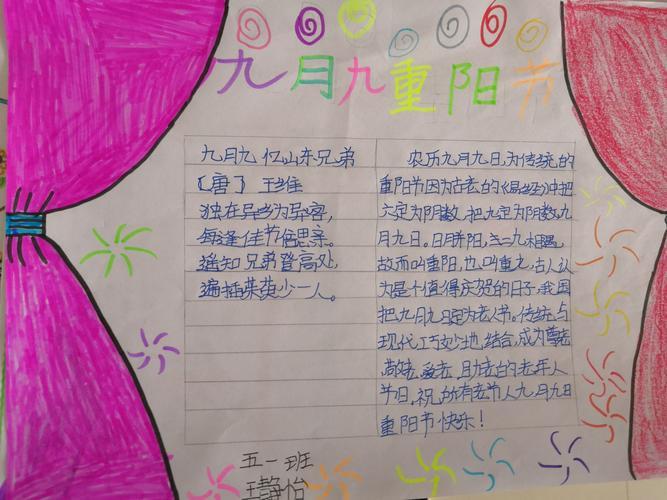 九月九重阳节
九月九忆山东兄弟
〔唐〕 王维
独在异乡为异客，
每逢佳节倍思亲。
遥知兄弟登高处，
遍插茱萸少一人。
农历九月九日，为传统的
重阳节因为古老的《易经》中把
六定为阴数，把九定为阳数，九
月九日。日月并阳，两九相遇，
故而叫重阳，也叫重九，古人认
为是个值得庆贺的日子。我国
把九月九日定为老人节。传统与
现代巧妙地结合，成为尊老
敬老、爱老、助老的老年人
节日，祝所有老节人九月九日
重阳节快乐！
五一班
王静怡